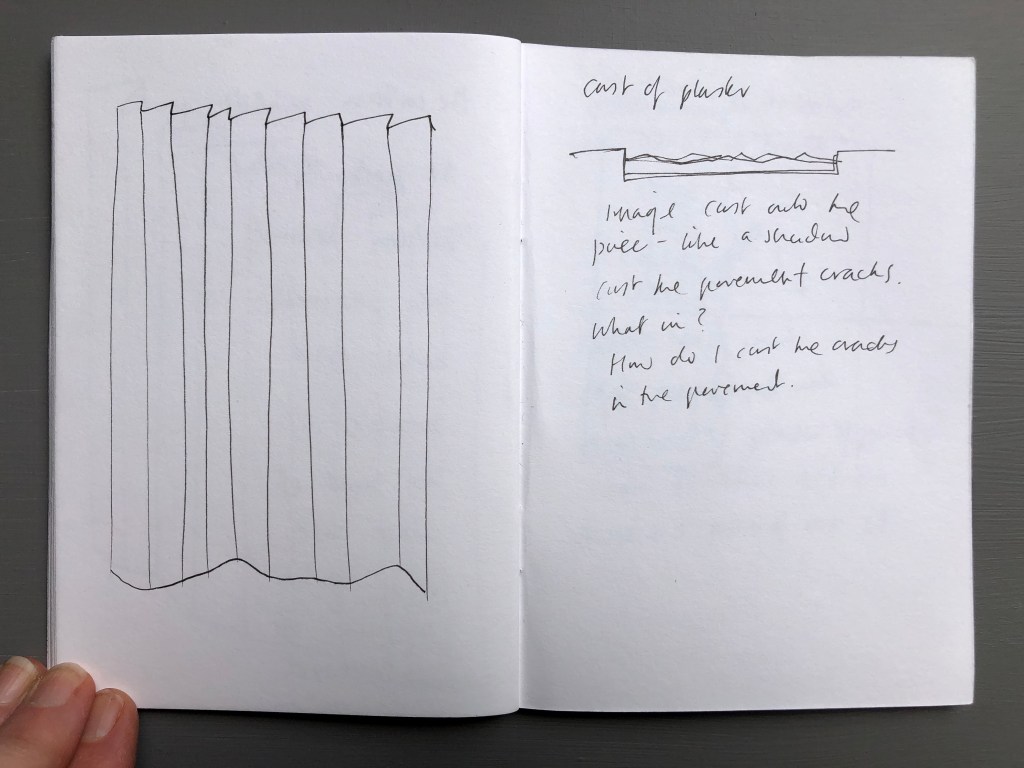 cast of plaster
Image cast onto the
piece - like a shadow
cast the pavement cracks.
What in?
How do I cast the cracks
in the pavement.